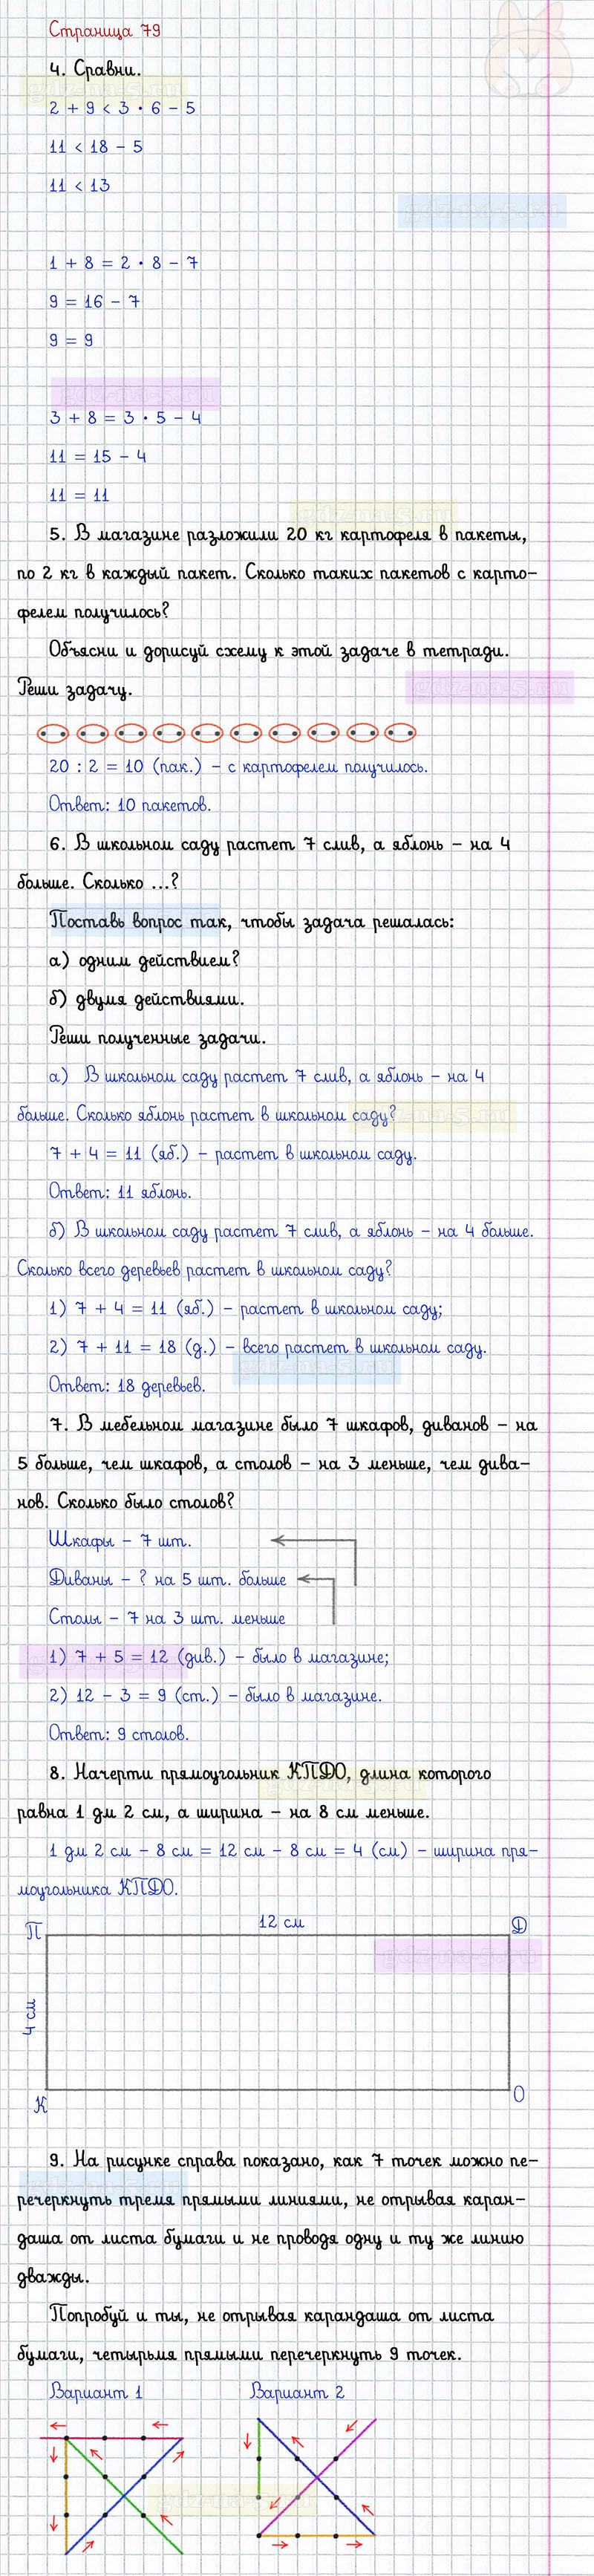 Страница 79
4. Сравни.
gdz-na-5.ru
2 + 9 < 3 · 6 - 5
11 < 18 - 5
11 < 13
gdz-na-5.ru
1 + 8 = 2 · 8 - 7
9 = 16 - 7
9 = 9
gdz-na-5.ru
3 + 8 = 3 · 5 - 4
11 = 15 - 4
11 = 11
gdz-na-5.ru
5. В магазине разложили 20 кг картофеля в пакеты,
по 2 кг в каждый пакет. Сколько таких пакетов с карто-
фелем получилось?
Объясни и дорисуй схему к этой задаче в тетради.
Реши задачу.
gdz-na-5.ru
20 : 2 = 10 (пак.) - с картофелем получилось.
Ответ: 10 пакетов.
6. В школьном саду растет 7 слив, а яблонь - на 4
больше. Сколько ...?
Поставь вопрос так, чтобы задача решалась:
а) одним действием?
б) двумя действиями.
Реши полученные задачи.
а) В школьном саду растет 7 слив, а яблонь - на 4
больше. Сколько яблонь растет в школьном саду?
7 + 4 = 11 (яб.) - растет в школьном саду.
Ответ: 11 яблонь.
б) В школьном саду растет 7 слив, а яблонь - на 4 больше.
Сколько всего деревьев растет в школьном саду?
1) 7 + 4 = 11 (яб.) - растет в школьном саду;
2) 7 + 11 = 18 (д.) - всего растет в школьном саду.
Ответ: 18 деревьев.
7. В мебельном магазине было 7 шкафов, диванов - на
5 больше, чем шкафов, а столов - на 3 меньше, чем дива-
нов. Сколько было столов?
Шкафы - 7 шт.
Диваны - ? на 5 шт. больше
Столы - 7 на 3 шт. меньше
1) 7 + 5 = 12 (див.) - было в магазине;
2) 12 - 3 = 9 (ст.) - было в магазине.
Ответ: 9 столов.
8. Начерти прямоугольник КПДО, длина которого
равна 1 дм 2 см, а ширина - на 8 см меньше.
1 дм 2 см - 8 см = 12 см - 8 см = 4 (см) - ширина пря-
моугольника КПДО.
П
12 см
Д
gdz-na-5.ru
4 см
К
О
9. На рисунке справа показано, как 7 точек можно пе-
речеркнуть тремя прямыми линиями, не отрывая каран-
даша от листа бумаги и не проводя одну и ту же линию
дважды.
Попробуй и ты, не отрывая карандаша от листа
бумаги, четырьмя прямыми перечеркнуть 9 точек.
Вариант 1
Вариант 2